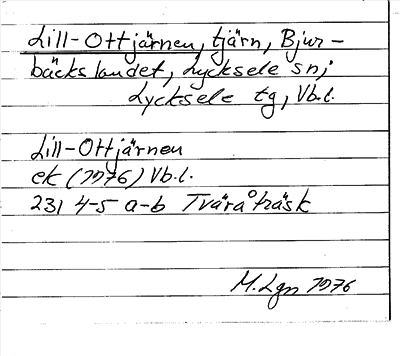 Lill-Ottjärnen, tjärn, Bjur-
bäckslandet, Lycksele sn;
Lycksele tg, Vb.l.
Lill-Ottjärnen
ek (1976) Vb.l.
231 4-5 a-b Tväråträsk
M.Lgn 1976